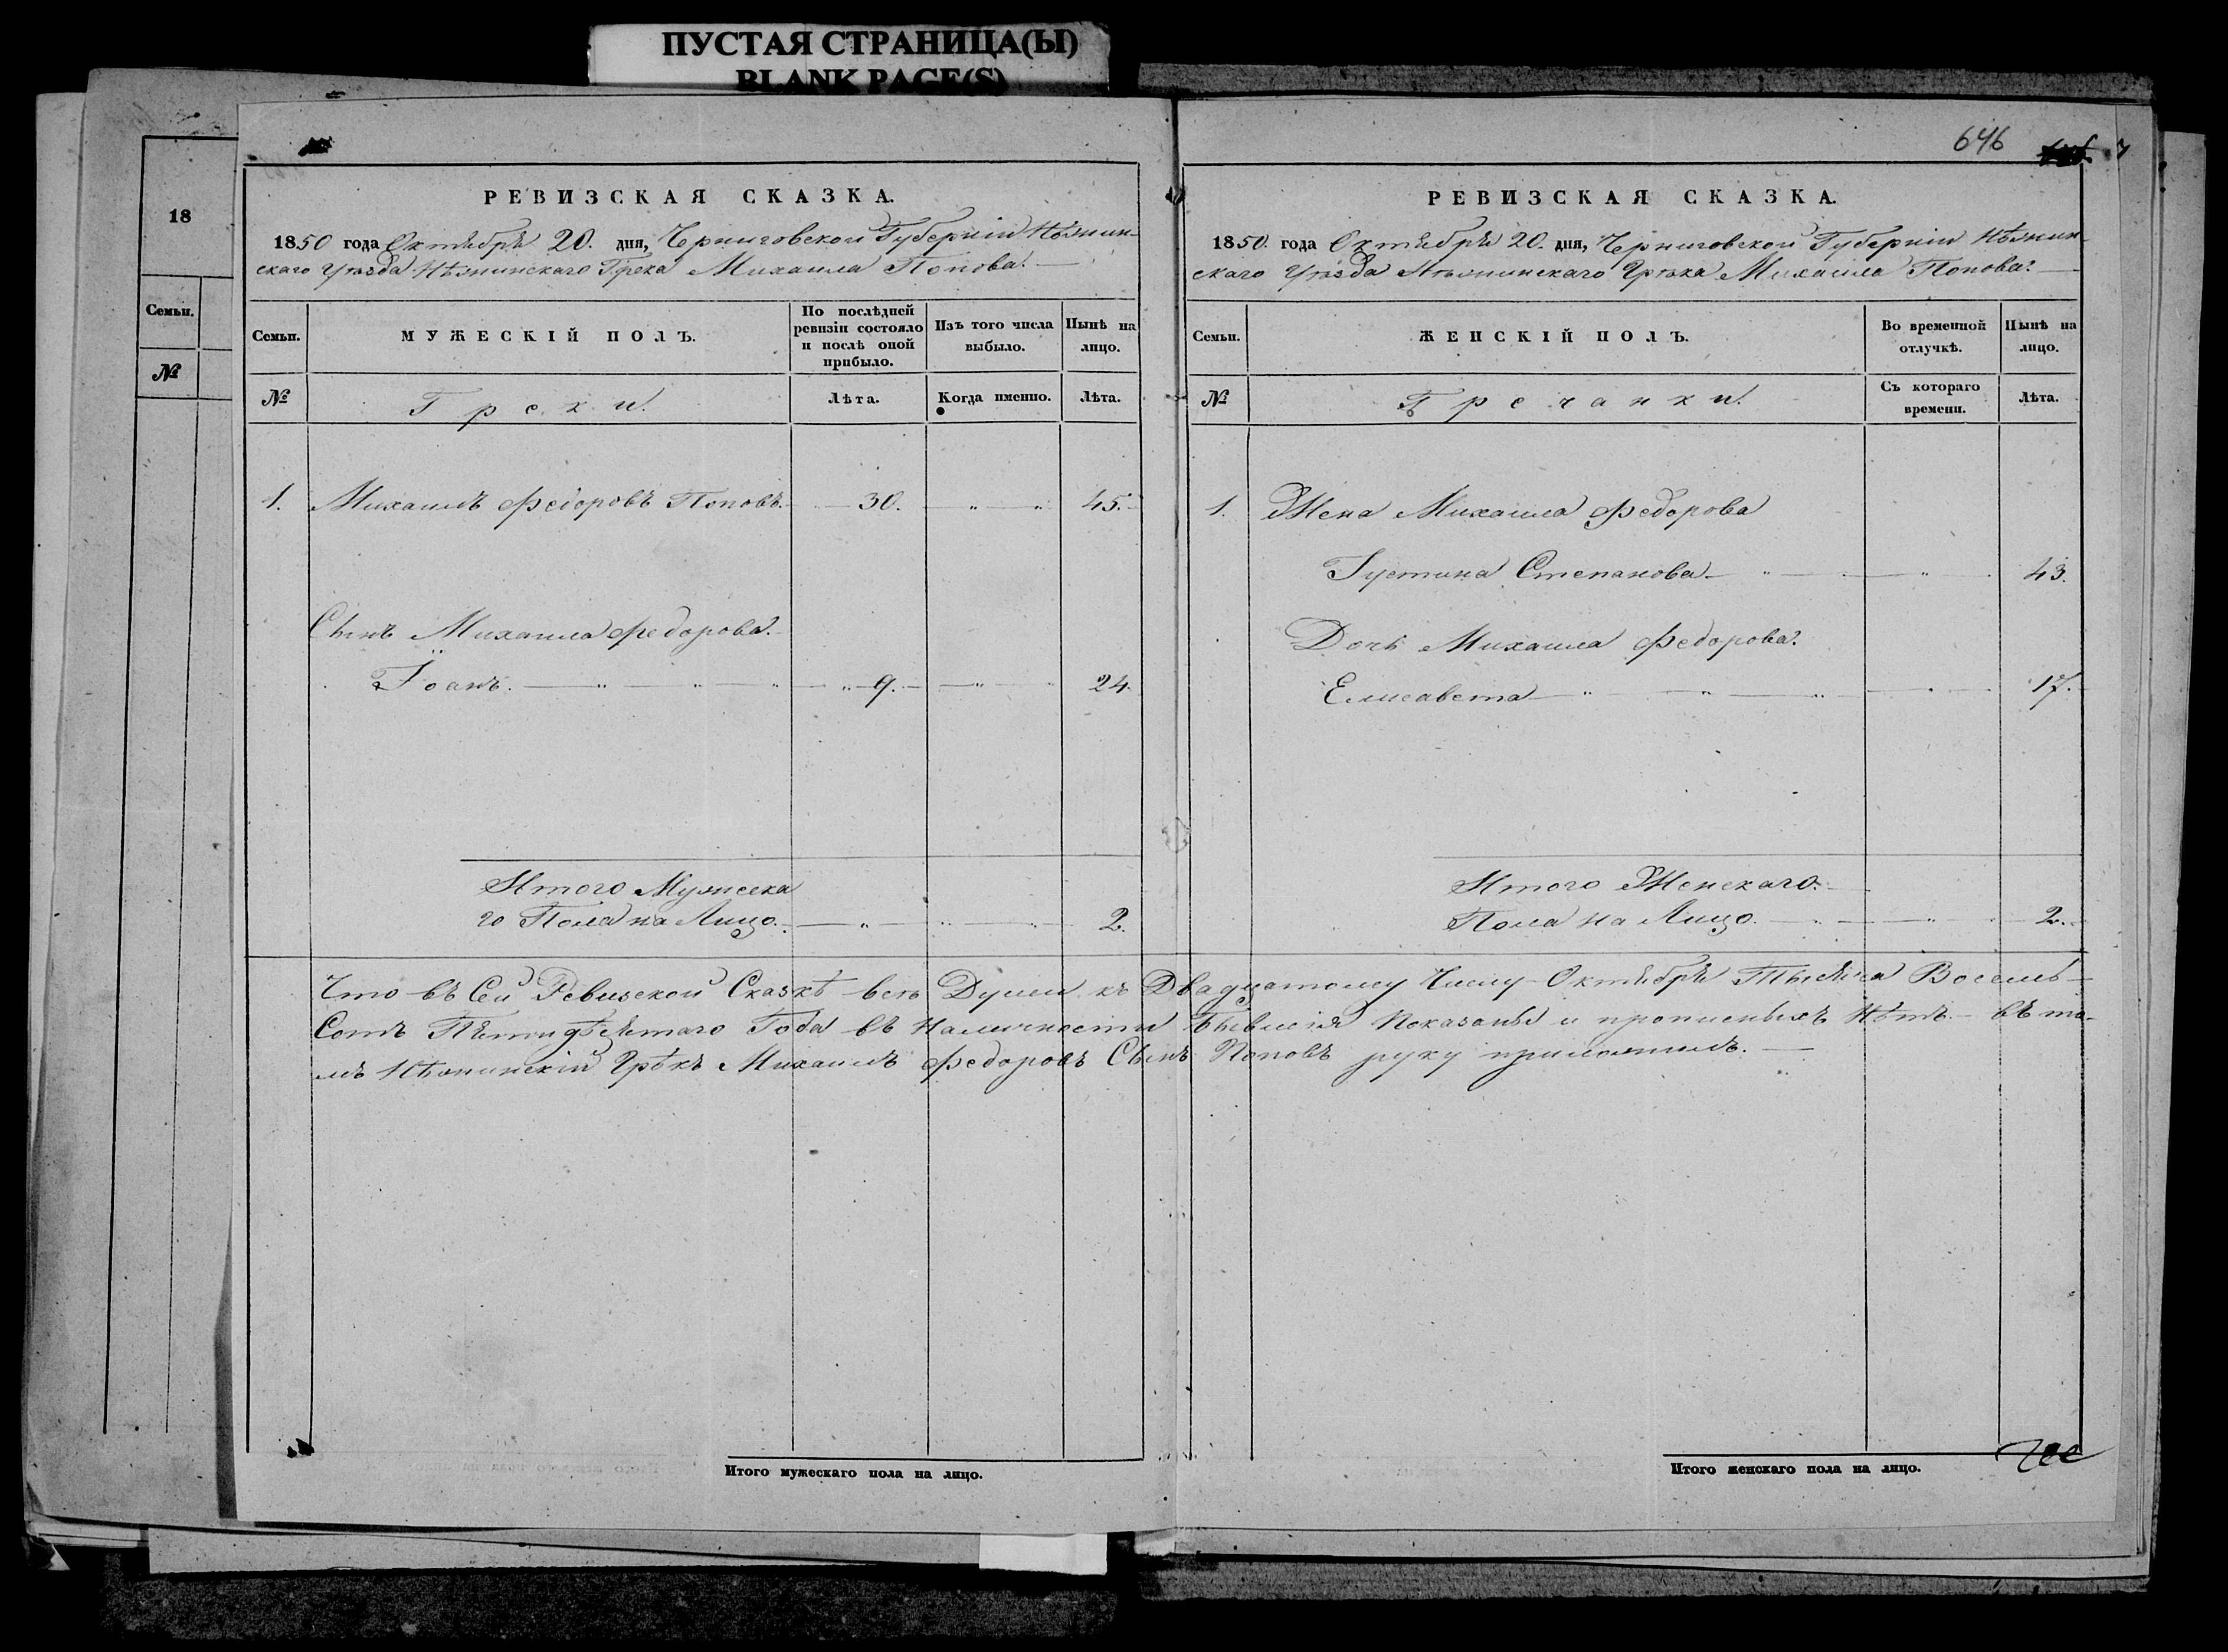 ПУСТАЯ СТРАНИЦА(Ы)
BLANK PAGE(S)
18
Семьи.
№
РЕВИЗСКАЯ СКАЗКА.
1850 года Октября 20. дня, Черниговской Губерніи Нѣжин-
скаго Уѣзда Нѣжинскаго Грека Михаила Попова.
Семьи. МУЖЕСКІЙ ПОЛЪ. По послѣдней ревизіи состояло и послѣ оной прибыло. Изъ того числа выбыло. Нынѣ на лицо.
№ Греки. Лѣта. Когда именно. Лѣта.
1. Михаилъ Федоровъ Поповъ. 30. " " 45.
Сынъ Михаила Федорова.
Іоанъ. " " " " 9. " 24.
Итого Мужеска
го Пола на Лицо. " " 2.
646
РЕВИЗСКАЯ СКАЗКА.
1850. года Октября 20. дня, Черниговской Губерніи Нѣжин-
скаго Уѣзда Нѣжинскаго Грѣка Михаила Попова.
Семьи. ЖЕНСКІЙ ПОЛЪ. Во временной отлучкѣ. Нынѣ на лицо.
№ Гречанки. Съ котораго времени. Лѣта.
1. Жена Михаила Федорова
Іустина Степанова " " 43.
Дочь Михаила Федорова.
Елисавета " " " " 17.
Итого Женскаго.
Пола на Лицо. " 2.
Что въ Сей Ревизской Сказкѣ всѣ Души къ Двадцатому Числу Октября Тысяча Восемь-
Сотъ Пятидѣсятаго Года въ Наличности Бывшія Показаны и прописныхъ Нѣтъ. въ то-
мъ Нѣжинскій Грѣкъ Михаилъ Федоровъ Сынъ Поповъ руку приложилъ.
Итого мужескаго пола на лицо.
Итого женскаго пола на лицо.